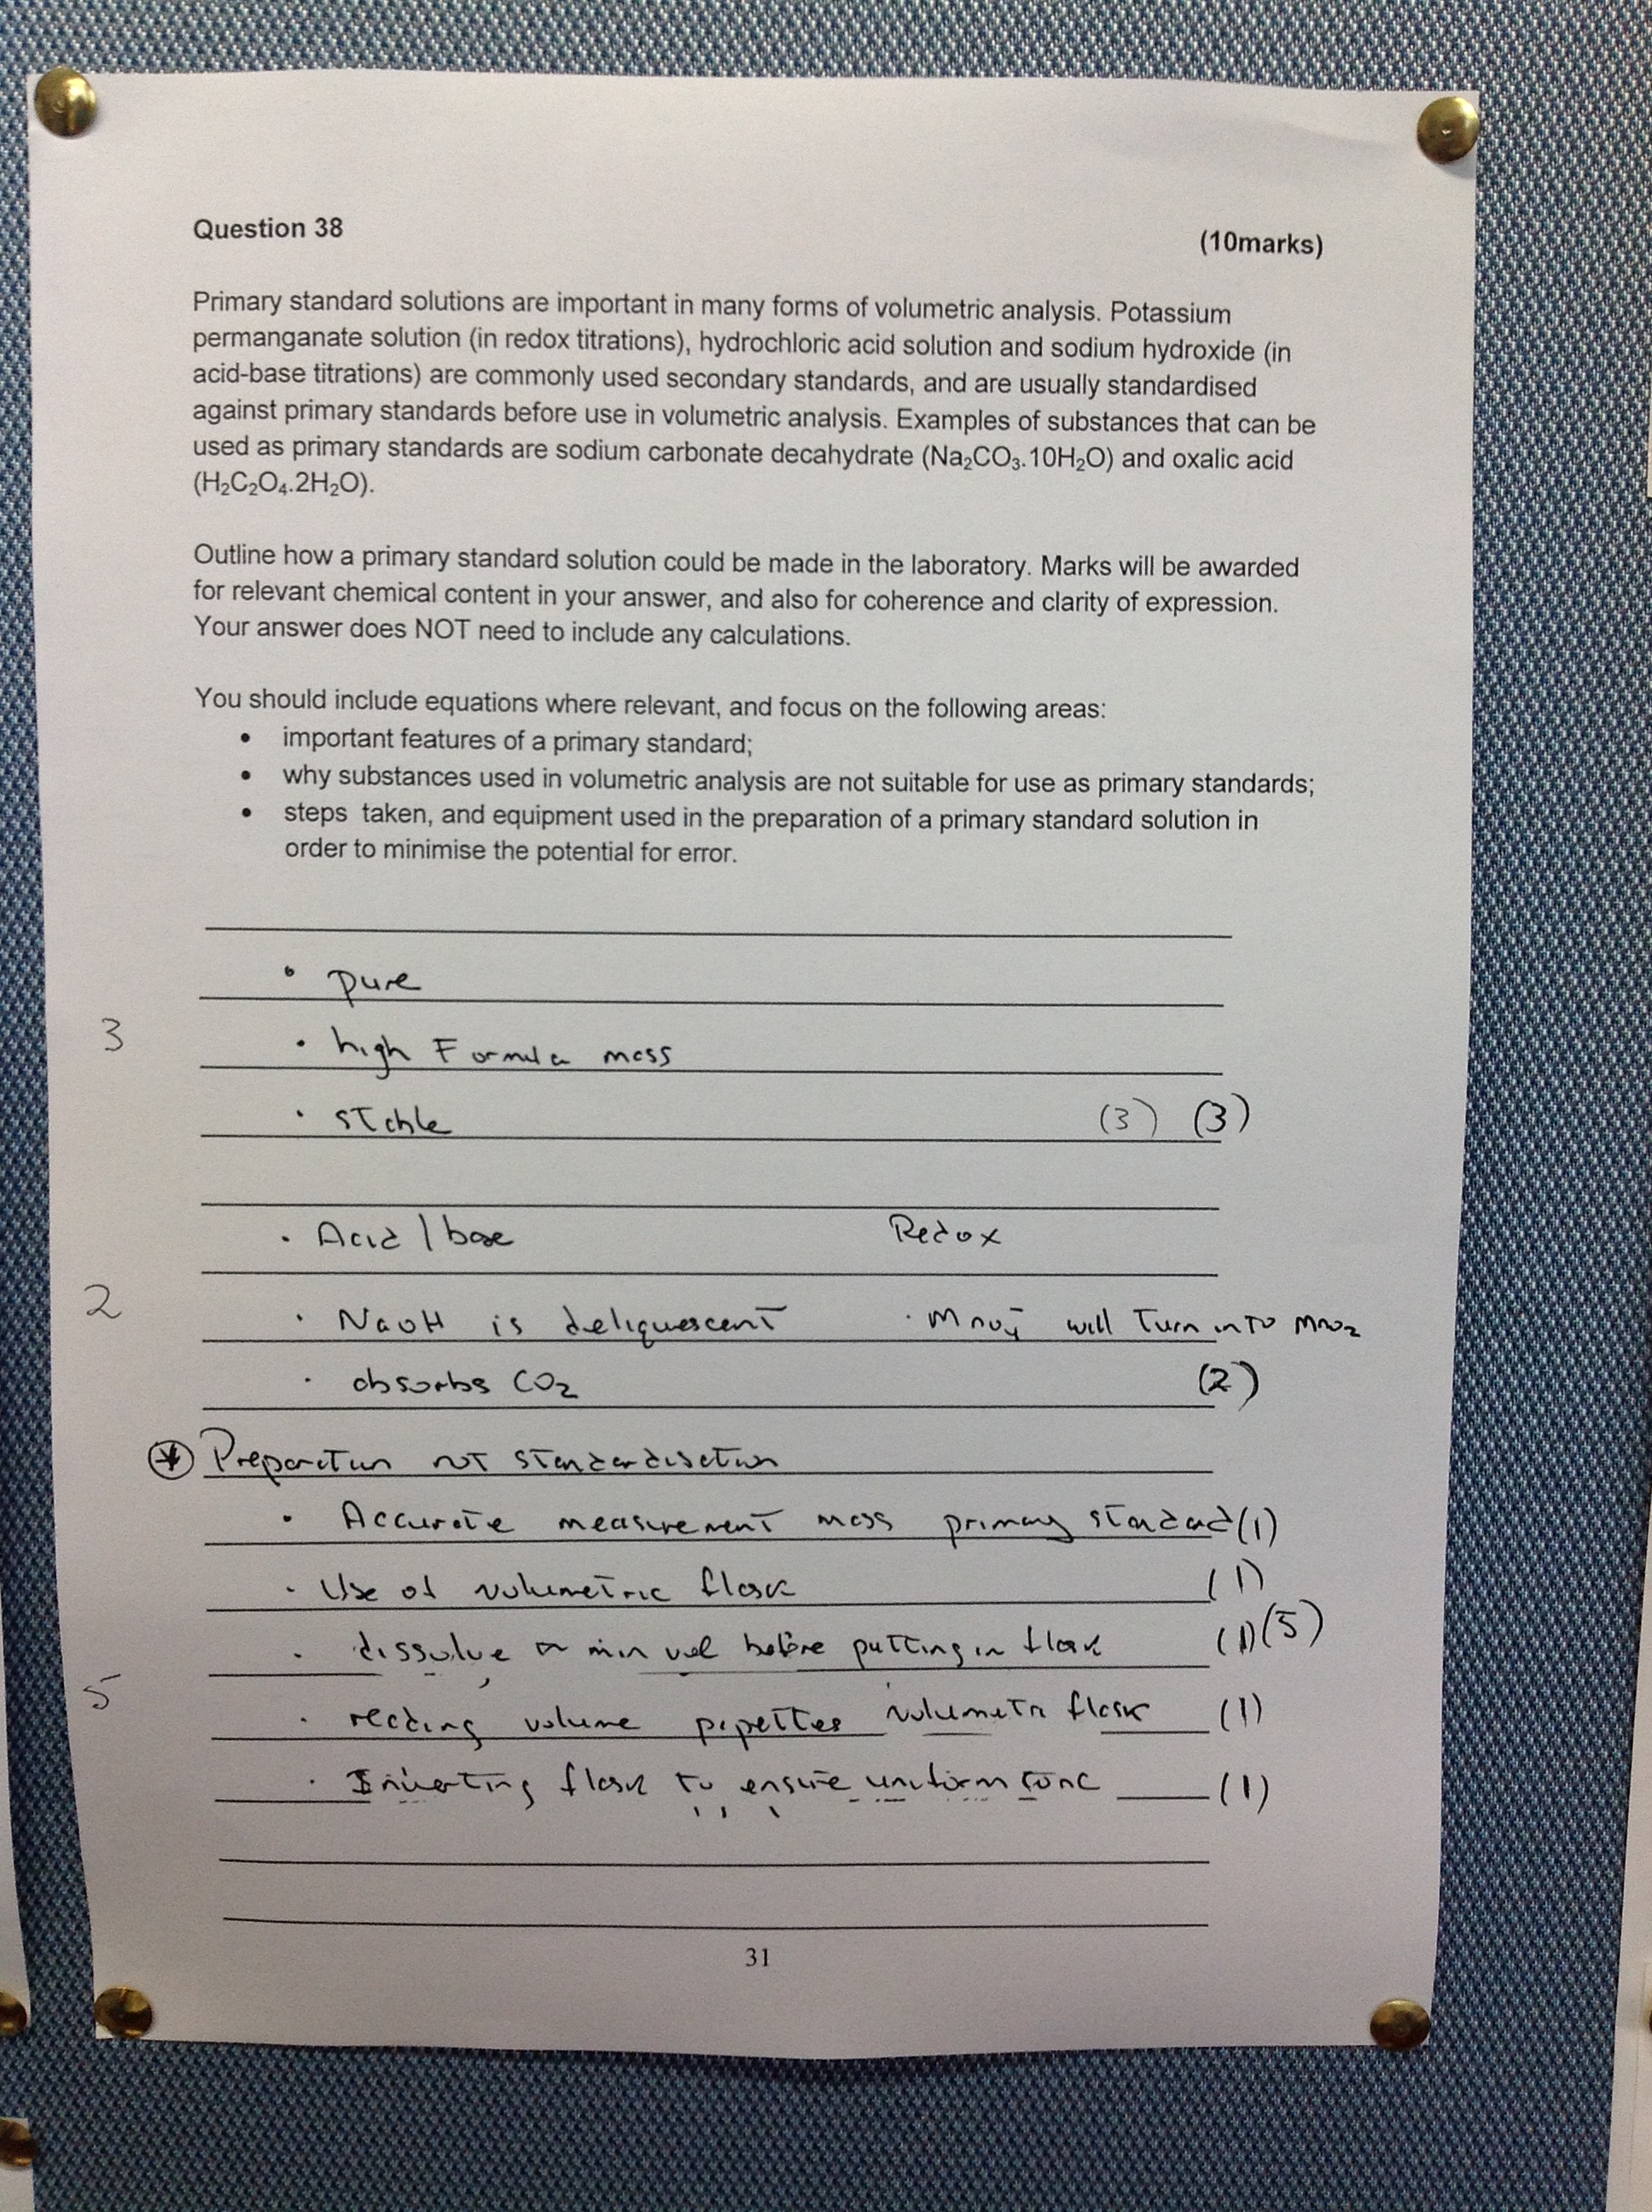 Question 38
(10marks)
Primary standard solutions are important in many forms of volumetric analysis. Potassium
permanganate solution (in redox titrations), hydrochloric acid solution and sodium hydroxide (in
acid-base titrations) are commonly used secondary standards, and are usually standardised
against primary standards before use in volumetric analysis. Examples of substances that can be
used as primary standards are sodium carbonate decahydrate (Na₂CO₃.10H₂O) and oxalic acid
(H₂C₂O₄.2H₂O).
Outline how a primary standard solution could be made in the laboratory. Marks will be awarded
for relevant chemical content in your answer, and also for coherence and clarity of expression.
Your answer does NOT need to include any calculations.
You should include equations where relevant, and focus on the following areas:
• important features of a primary standard;
• why substances used in volumetric analysis are not suitable for use as primary standards;
• steps taken, and equipment used in the preparation of a primary standard solution in
order to minimise the potential for error.
• pure
3 • high Formula mass
• stable (3) (3)
• Acid / base Redox
2 • NaOH is deliquescent • MnO₄⁻ will Turn into MnO₂
• absorbs CO₂ (2)
* Preparation not standardisation
• Accurate measurement mass primary standard (1)
• Use of volumetric flask (1)
• dissolve in min vol before putting in flask (1) (5)
5 • reading volume pipettes volumetric flask (1)
• Inverting flask to ensure uniform conc (1)
31